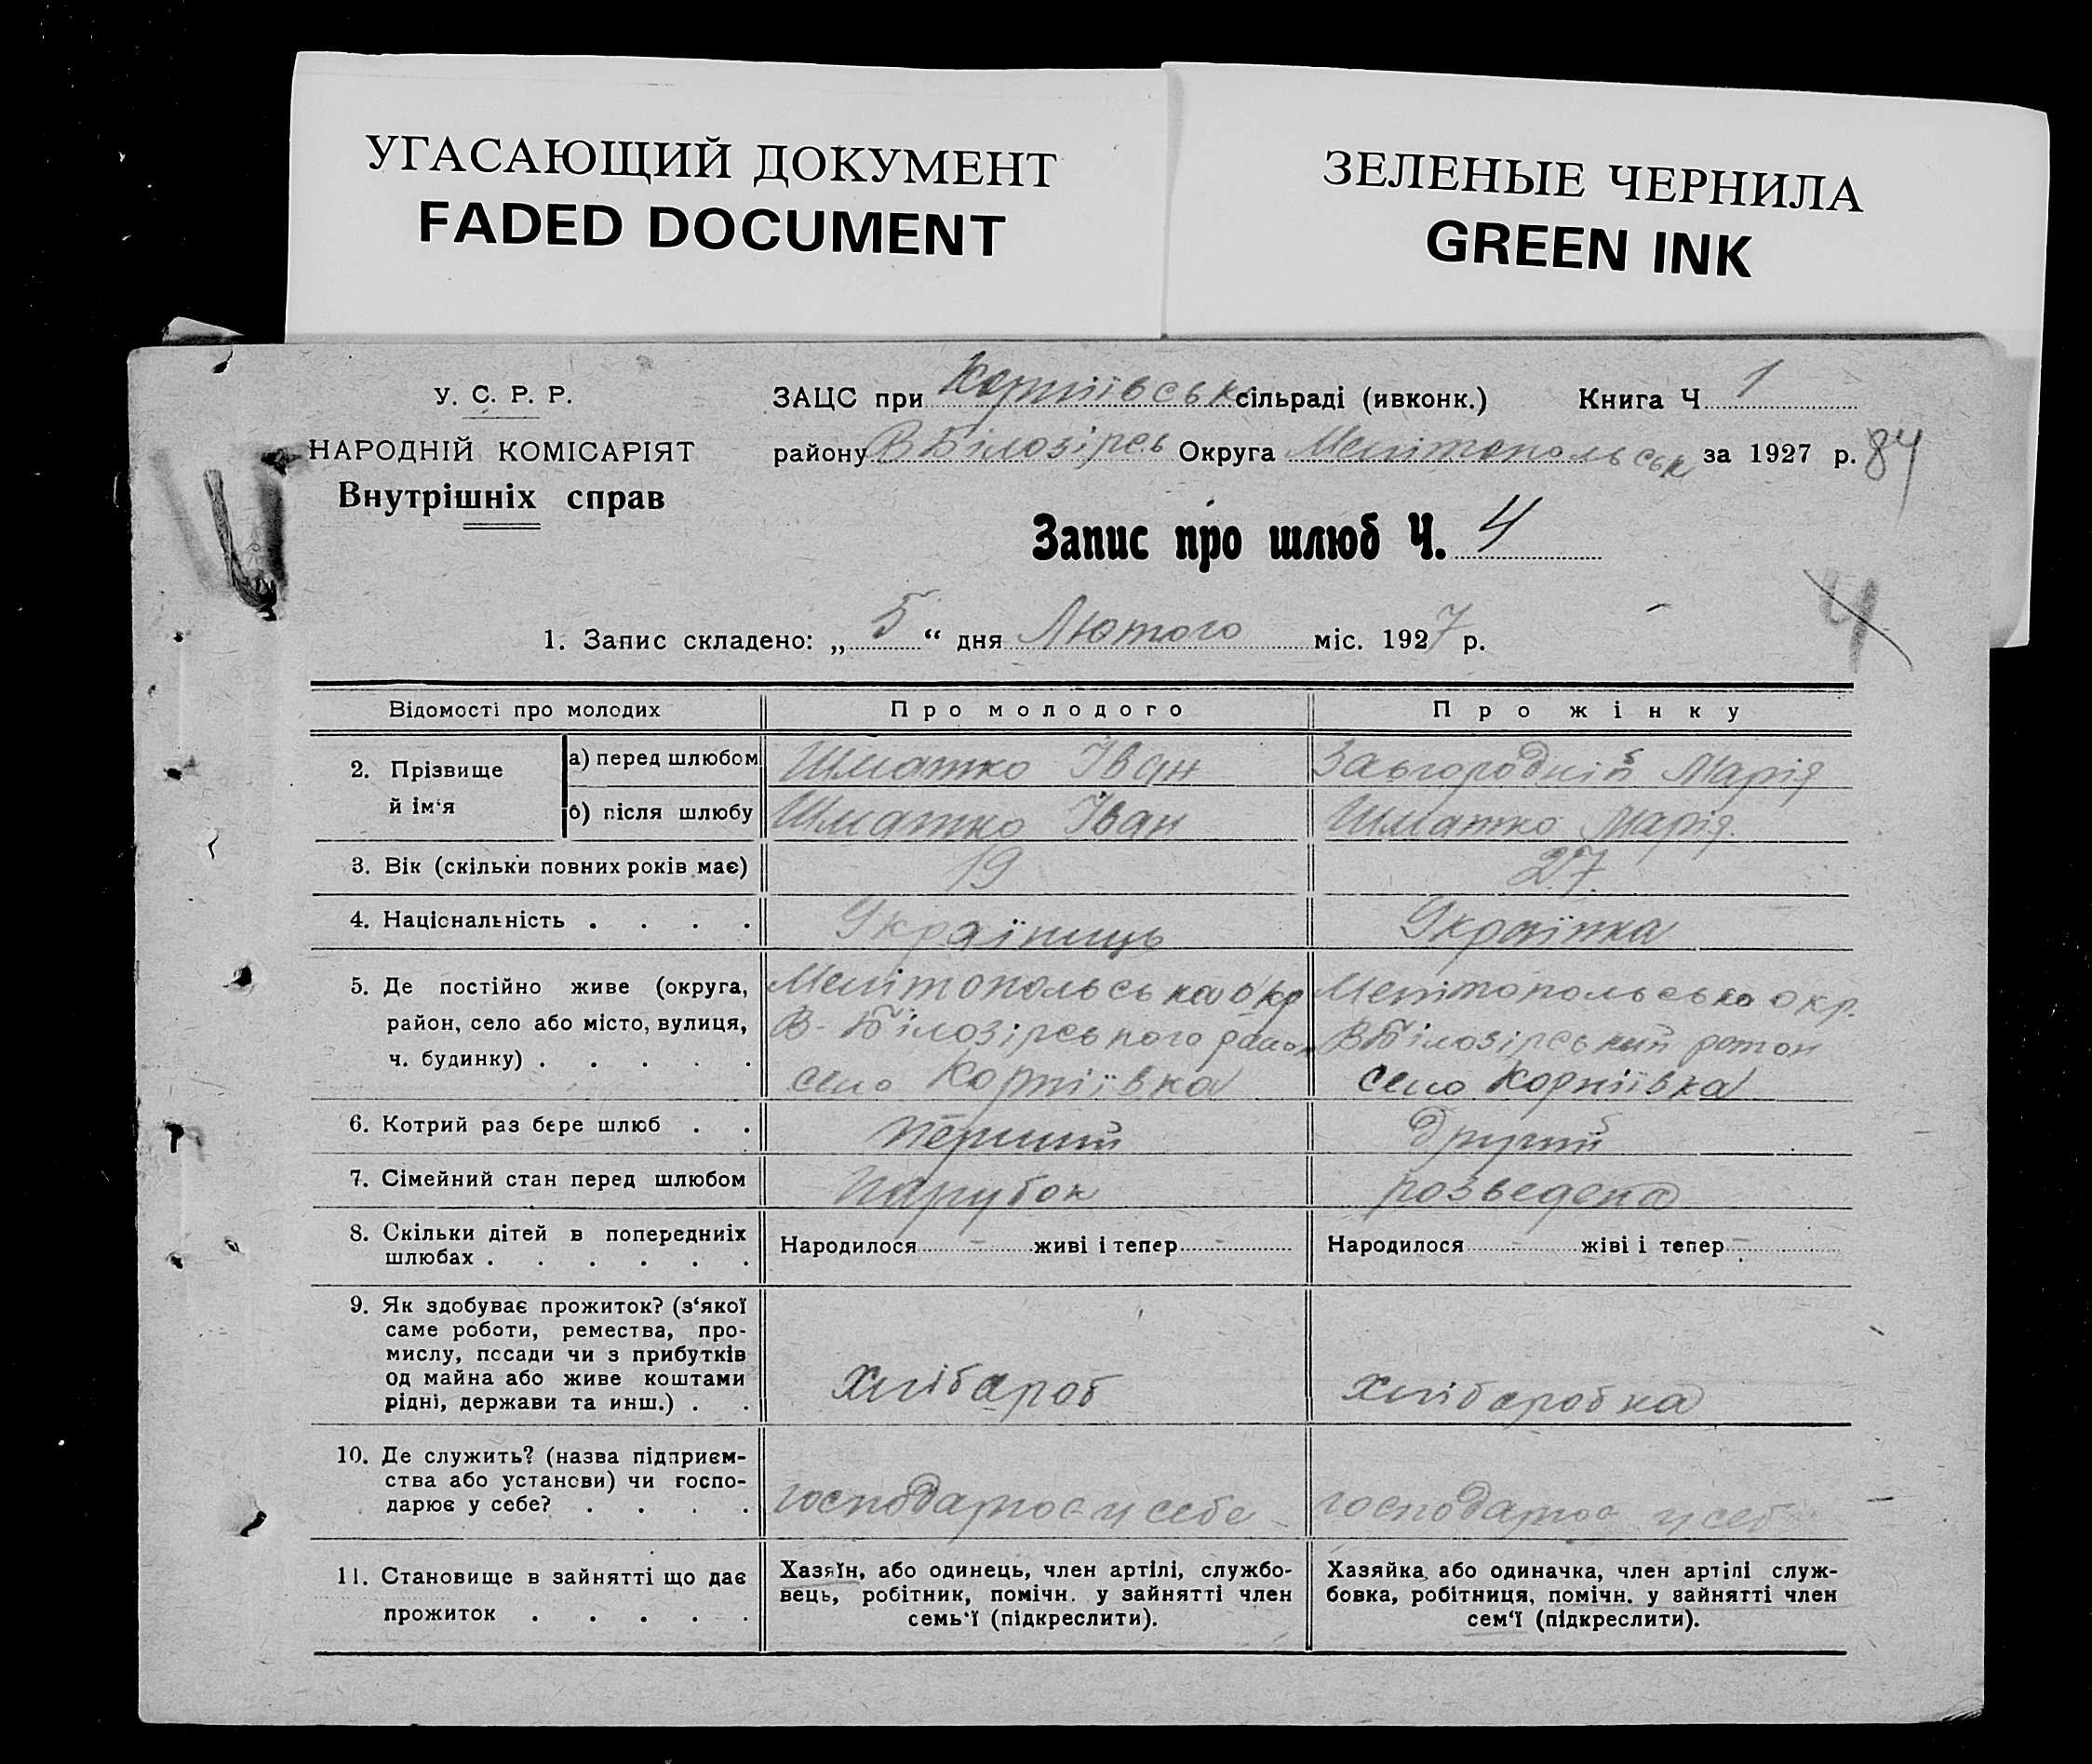 УГАСАЮЩИЙ ДОКУМЕНТ
FADED DOCUMENT
ЗЕЛЕНЫЕ ЧЕРНИЛА
GREEN INK
У. С. Р. Р.
НАРОДНІЙ КОМІСАРІЯТ
Внутрішніх справ
ЗАЦС при Корніївськ сільраді (ивконк.) Книга Ч. 1
району В Білозірсь Округа Мелітопольськ за 1927 р. 84
Запис про шлюб Ч. 4
4
1. Запис складено: „ 5 “ дня Лютого міс. 1927 р.
Відомості про молодих Про молодого Про жінку
2. Прізвище й ім‘я
а) перед шлюбом Шматко Іван Марія
б) після шлюбу Шматко Іван Шматко Марія
3. Вік (скільки повних років має) 19 27
4. Національність . . . . Українець Українка
5. Де постійно живе (округа,
район, село або місто, вулиця,
ч. будинку) . . . . .
Мелітопольська окр
В-Білозірського район
село Корніївка
Мелітопольська окр.
В Білозірський район
село Корніївка
6. Котрий раз бере шлюб . . Перший Другий
7. Сімейний стан перед шлюбом Парубок розведена
8. Скільки дітей в попередниіх
шлюбах . . . . . .
Народилося - живі і тепер -
Народилося - жіві і тепер -
9. Як здобуває прожиток? (з‘якої
саме роботи, ремества, про-
мислу, посади чи з прибутків
од майна або живе коштами
рідні, держави та инш.) . .
Хлібароб
Хлібаробка
10. Де служить? (назва підприєм-
ства або установи) чи госпо-
дарює у себе? . . . .
господарює у себе
господарює у себ
11. Становище в зайнятті що дає
прожиток . . . . .
Хазяїн, або одинець, член артілі, службо-
вець, робітник, помічн. у зайнятті член
семь‘ї (підкреслити).
Хазяйка або одиначка, член артілі служ-
бовка, робітниця, помічн. у зайнятті член
сем‘ї (підкреслити).